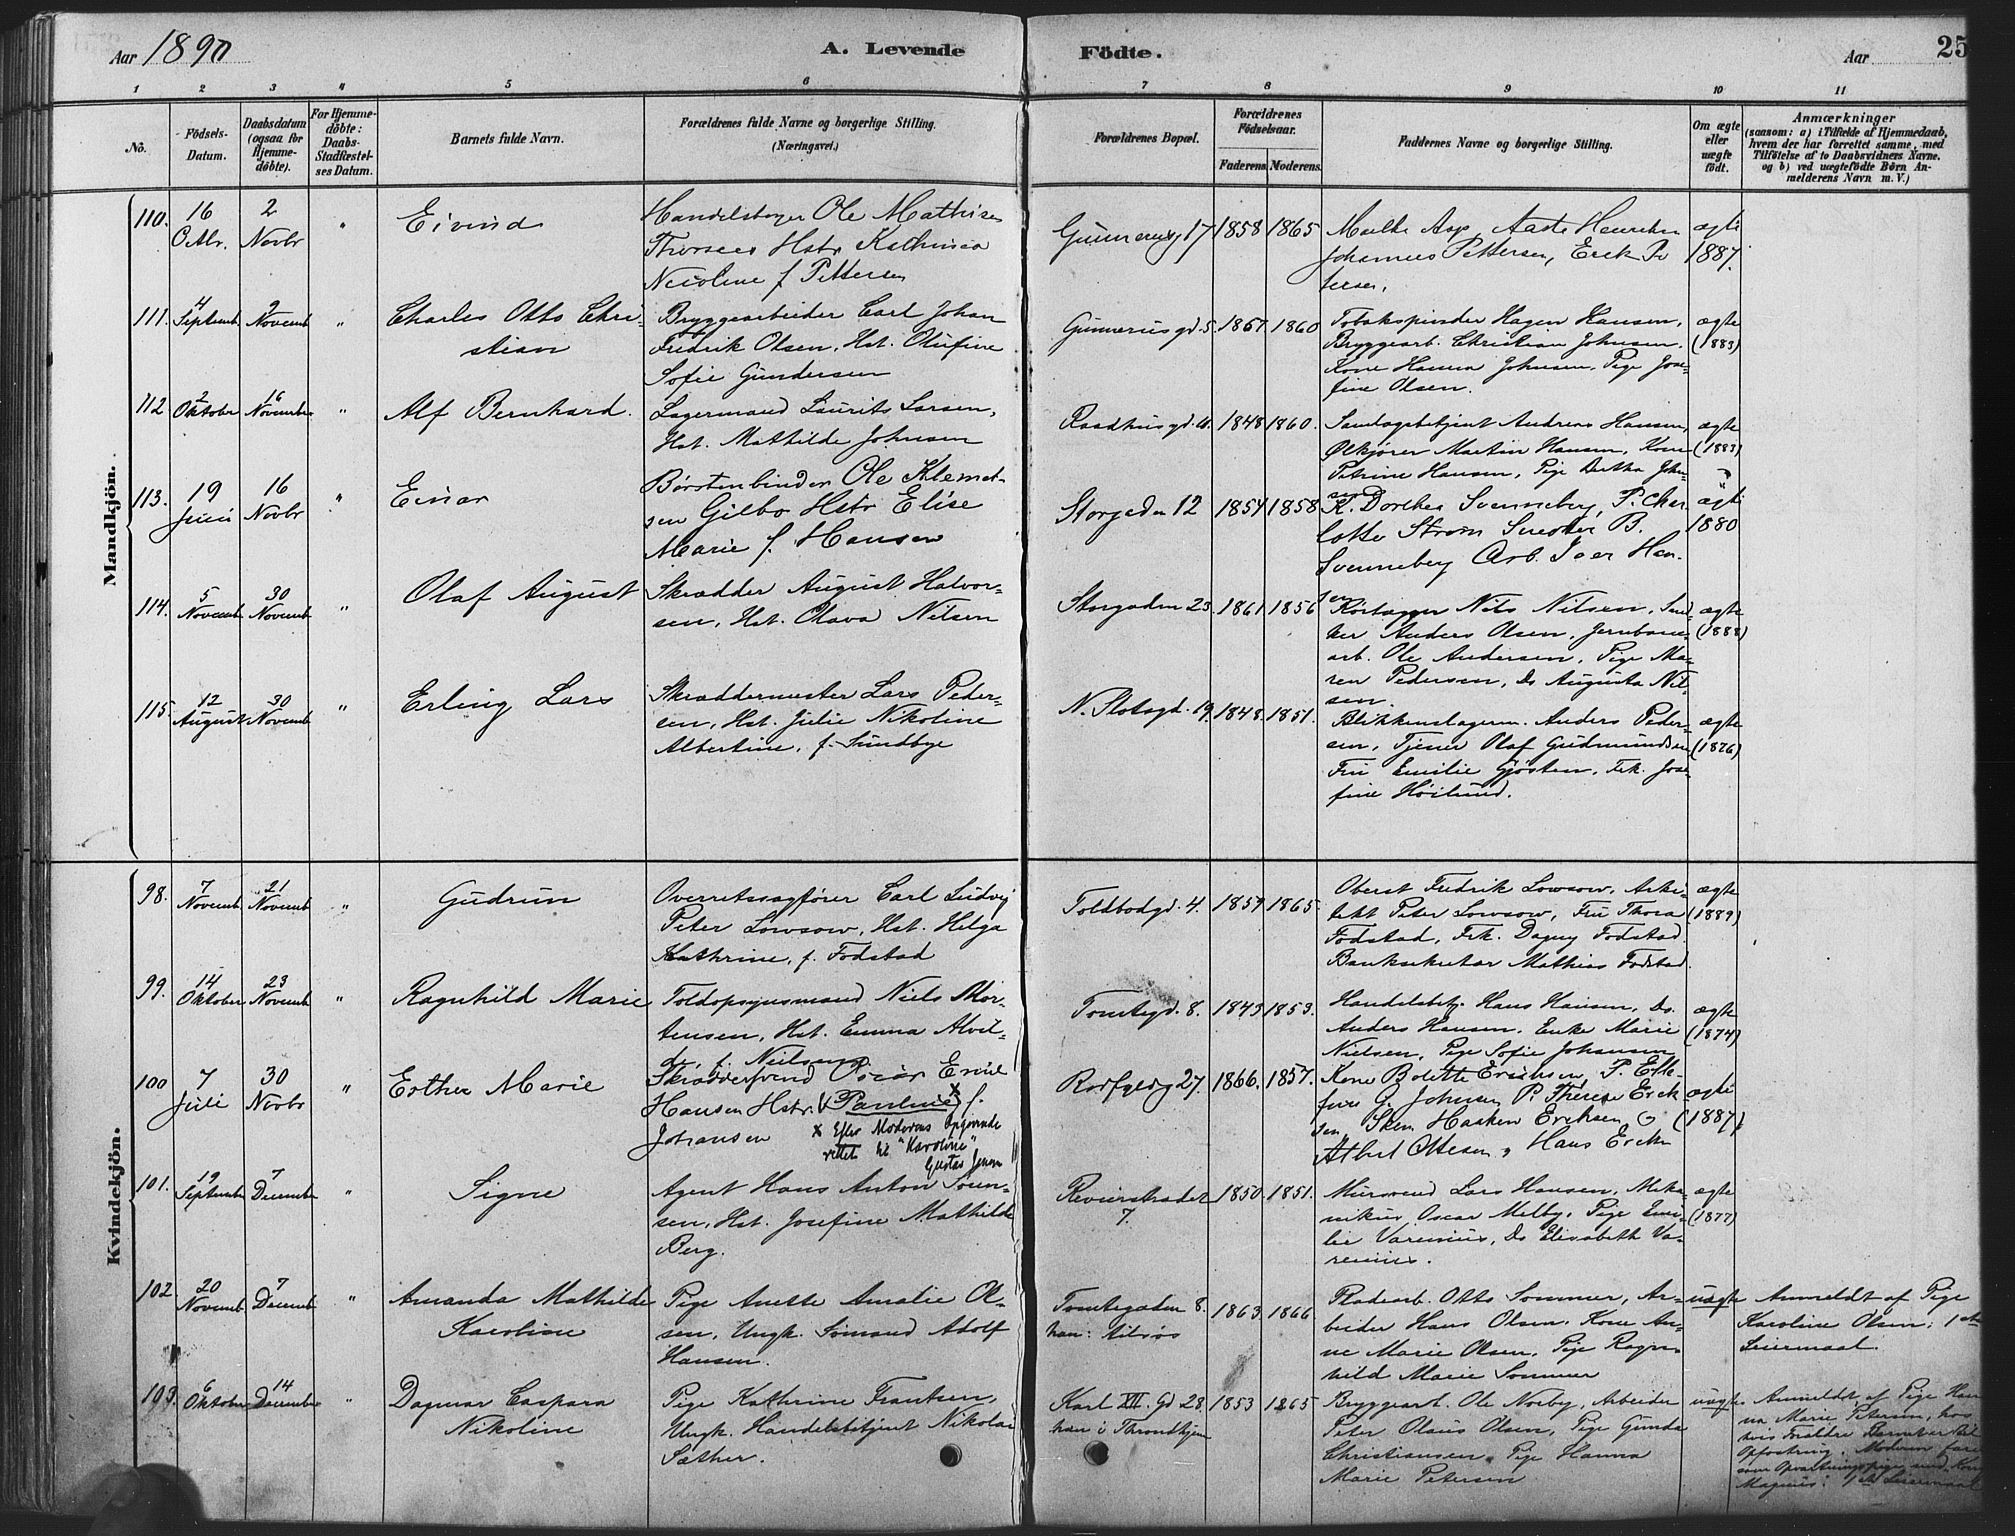 Aar 1890
A. Levende
Födte.
Aar
25
1 2 3 4 5 6 7 8 9 10 11
No.
Födsels-Datum.
Daabsdatum (ogsaa for Hjemmedöbte).
For Hjemmedöbte: Daabs-Stadfæstelses Datum.
Barnets fulde Navn.
Forældrenes fulde Navne og borgerlige Stilling. (Næringsvei.)
Forældrenes Bopæl.
Forældrenes Födselsaar.
Faderens. Moderens.
Faddernes Navne og borgerlige Stilling.
Om ægte eller uægte födt.
Anmærkninger
(saasom: a) i Tilfælde af Hjemmedaab,
hvem der har forrettet samme, med
Tilföielse af to Daabsvidners Navne.
og b) ved uægtefödte Börn Anmelderens Navn m. V.)
Mandkjön.
110. 16 Octbr. 2 Novbr " Eivind
Ole Mathisen
Nicoline f. Pettersen
Gunnerusg 17 1858 1865
Johannes Pettersen, Erik Pe
tersen.
ægte 1887.
111. 4 Septemb. 2 Novemb " Charles Otto Chri-
stian
Bryggearbeider Carl Johan
Fredrik Olsen, Hst. Olufine
Sofie Gundersen
Gunnerusgd. 5. 1857 1860
Tobakspinder Hagen Hansen,
Bryggearb. Christian Johnsen,
Kone Hanna Johnsen, Pige Jose-
fine Olsen.
ægte (1883)
112. 2 Oktober 16 November " Alf Bernhard.
Lagermand Laurits Larsen,
Hst. Mathilde Johnsen
Raadhusgd. 1848 1860.
Andreas Hansen,
Ølkjører Martin Hansen, Kone
Petrine Hansen, Pige Dertha John-
sen
ægte (1883)
113. 19 Juni 16 Novbr " Einar
Børstenbinder Ole Klemet-
sen Gilbo Hstr Elise
Marie f. Hansen
Storgaden 12 1854 1858
K. Dorthea Svenneberg, P. Char
lotte Strøm Snedker B.
Svenneberg Arb. Iver Han-
sen
ægte 1880
114. 5 Novemb 30 Novemb " Olaf August
Skrædder August Halvor-
sen, Hst. Olava Nilsen
Storgaden 23 1861 1856
Nils Nilsen, Sned-
ker Anders Olsen, Jernbane-
arb. Ole Andersen, Pige Ma-
ren Pedersen, Do Augusta Nil-
sen.
ægte (1888)
115. 12 August 30 Novemb " Erling Lars
Skræddermester Lars Peder-
sen, Hst. Julie Nikoline
Albertine, f. Sundbye
N. Slotsgd. 19. 1848. 1851.
Blikkenslagerm. Anders Peder-
sen, Tjener Olaf Gudmundsen
Fru Emilie Gjøsten, Frk. Jose-
fine Høilund.
ægte (1876)
Kvindekjön.
98. 7 Novemb 21 Novemb " Gudrun
Overretssagfører Carl Ludvig
Peter Lowsow, Hst. Helga
Kathrine, f. Fodstad
Toldbodgd. 4. 1859 1865.
Oberst Fredrik Lowsow, Arki-
tekt Peter Lowsow, Fru Thora
Fodstad, Frk. Dagny Fodstad
Banksekretær Mathias Fodstad.
ægte (1889)
99. 14 Oktober 23 Novemb " Ragnhild Marie
Toldopsynsmand Niels Mor-
tensen, Hst. Emma Alvil-
de, f. Neilsen
Tomtegd. 8. 1849 1853.
Handelsbetj. Hans Hansen, Do.
Anders Hansen, Enke Marie
Nielsen, Pige Sofie Johansen
ægte (1874)
100 7 Juli 30 Novbr " Esther Marie
Skræddersvend Oscar Emil
Hansen Hstr. (Pauline) x f.
Johansen
x Efter Moderens Opgivende
rettet til "Karoline"
Gustav Jensen
27 1866. 1857.
Kone Bolette Eriksen, P. 
fine G. Johnsen P. Therese Erik-
sen, Haaken Eriksen
Albert Ottesen, Hans Erik
ægte (1887)
101. 19 September 7 December " Signe
Agent Hans Anton Soren-
sen, Hst. Josefine Mathilde
Berg.
Revierstrædet 7. 1850. 1851.
Mursvend Lars Hansen, Meka-
nikus Oscar Melby, Pige Emi-
lie Varenius, Do Elisabeth Va-
renius.
ægte (1877)
102 20 Novemb 7 Decemb " Amanda Mathilde
Karoline
Pige Anette Amalie Ol-
sen, Ungk. Sømand Adolf
Hansen.
Tomtegaden 8.
han:
1863 1866
Pladearb. Otto Sommer, Ar-
beider Hans Olsen, Kone An-
ne Marie Olsen, Pige Ragn-
hild Marie Sommer
uægte
Anmeldt af Pige
Karoline Olsen; 1ste
Leiermaal.
103. 6 Oktober 14 December " Dagmar Caspara
Nikoline
Pige Kathrine Frantsen,
Ungk. Handelsbetjent Nikolai
Sæther.
Karl XII. Gd 28,
han i Throndhjem
1853 1865
Bryggearb. Ole Noeby, Arbeider
Peter Olaus Olsen, Pige Gunda
Christiansen, Pige Hanna
Marie Petersen
uægte
Anmeldt af Pige Han
na Marie Petersen, hos
hvis Forældre Barnet er til
Opfostring. Moderen
1ste Leiermaal